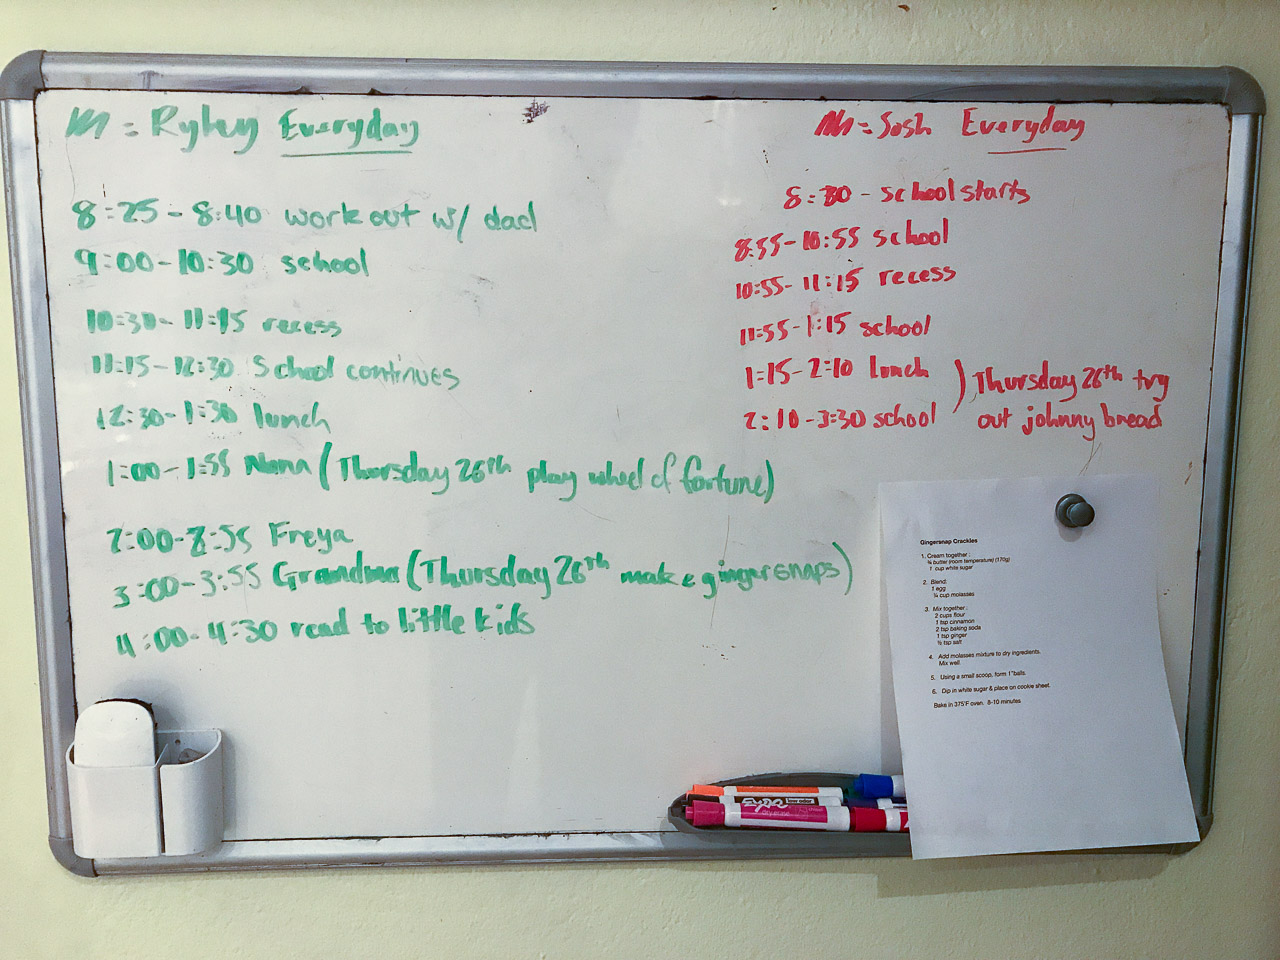 = Ryley Everyday
8:25-8:40 work out w/ dad
9:00-10:30 school
10:30-11:15 recess
11:15-12:30 School continues
12:30-1:30 lunch
1:00-1:55 Nana (Thursday 26th play wheel of fortune)
2:00-2:55 Freya
3:00-3:55 Grandma (Thursday 26th make gingersnaps)
4:00-4:30 read to little kids
= Sosh Everyday
8:30 - school starts
8:55-10:55 school
10:55-11:15 recess
11:55-1:15 school
1:15-2:10 lunch
2:10-3:30 school
) Thursday 26th try
out johnny bread
Gingersnap Crackles
1. Cream together :
¾ butter (room temperature) (170g)
1 cup white sugar
2. Blend:
1 egg
¼ cup molasses
3. Mix together :
2 cups flour
1 tsp cinnamon
2 tsp baking soda
1 tsp ginger
½ tsp salt
4. Add molasses mixture to dry ingredients.
Mix well.
5. Using a small scoop, form 1" balls.
6. Dip in white sugar & place on cookie sheet.
Bake in 375°F oven. 8-10 minutes
EXPO
low odor
dry erase